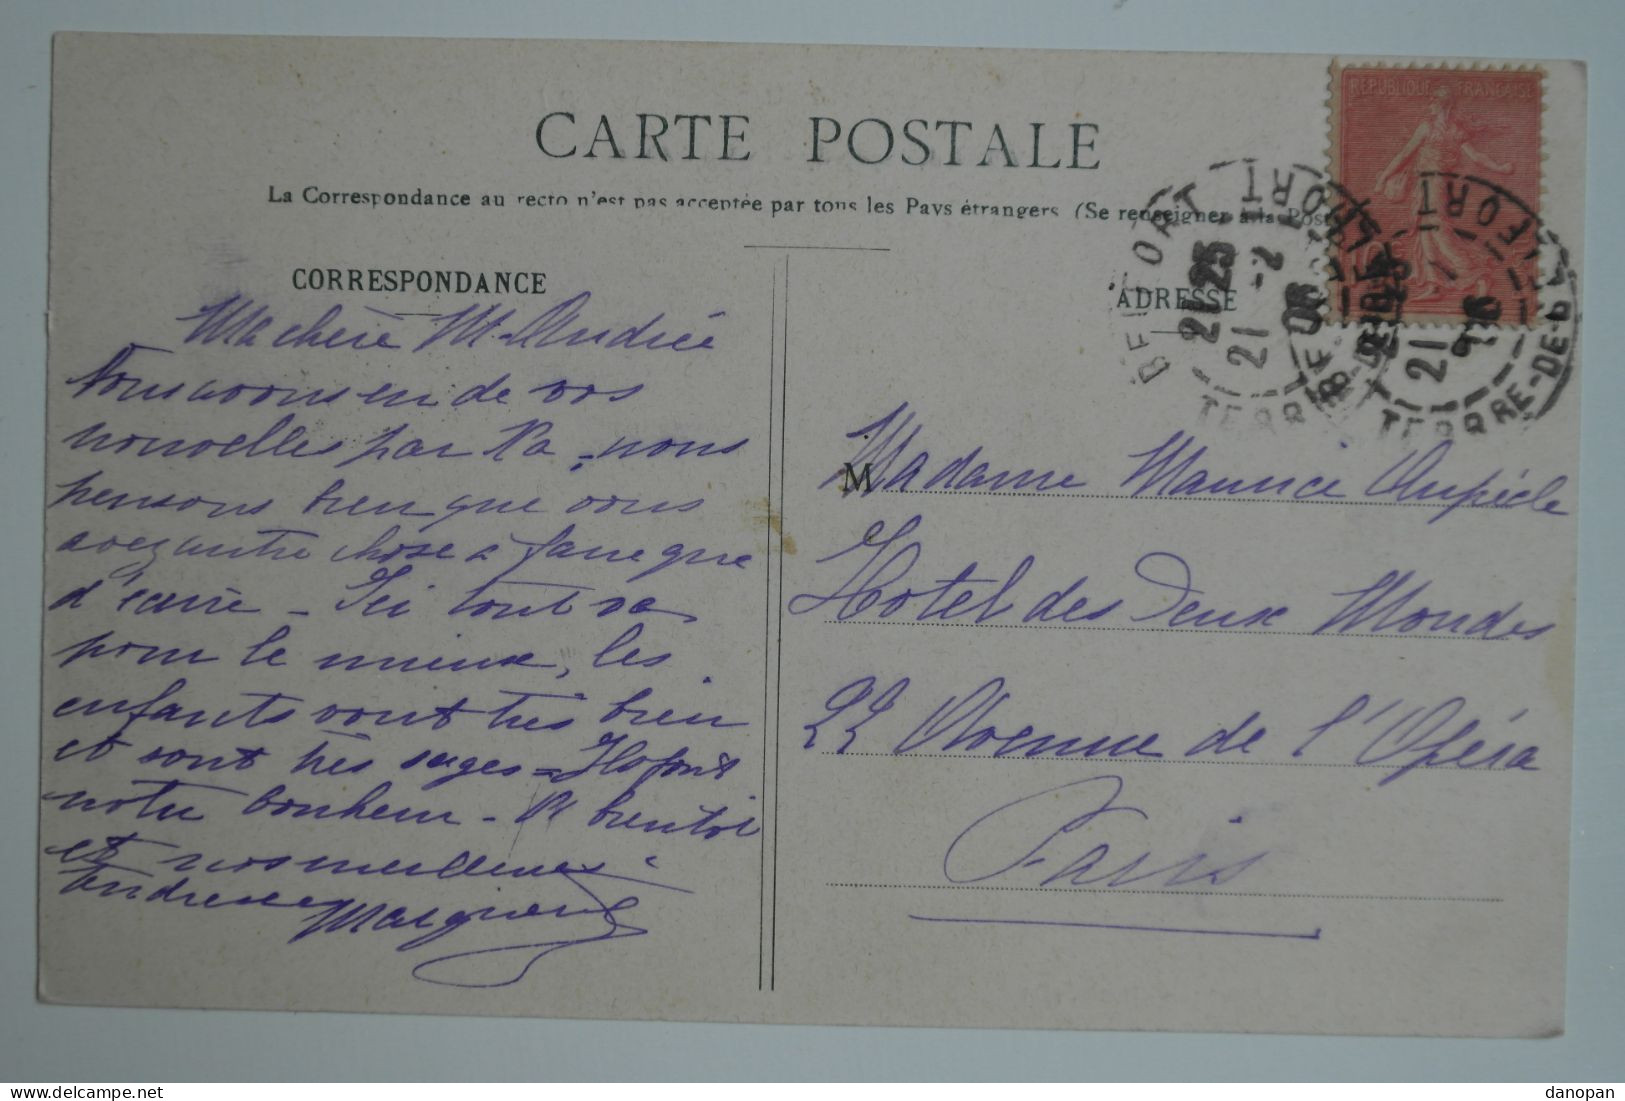 CARTE POSTALE
La Correspondance au recto n'est pas acceptée par tous les Pays étrangers. (Se renseigner à la Poste
CORRESPONDANCE
ADRESSE
REPUBLIQUE FRANÇAISE
BELFORT
21 25
21 -2
06
TERRE-DE-B
BELFORT
Ma chère M. Andrée
Nous avons eu de vos
nouvelles par Pa, nous
pensons bien que vous
avez autre chose à faire que
d'écrire - Ici tout va
pour le mieux, les
enfants vont très bien
et sont très sages - Ils font
notre bonheur - A bientôt
et nos meilleures
M
Madame Maurice
Hotel des Deux Mondes
22 Avenue de l'Opéra
Paris
danopan